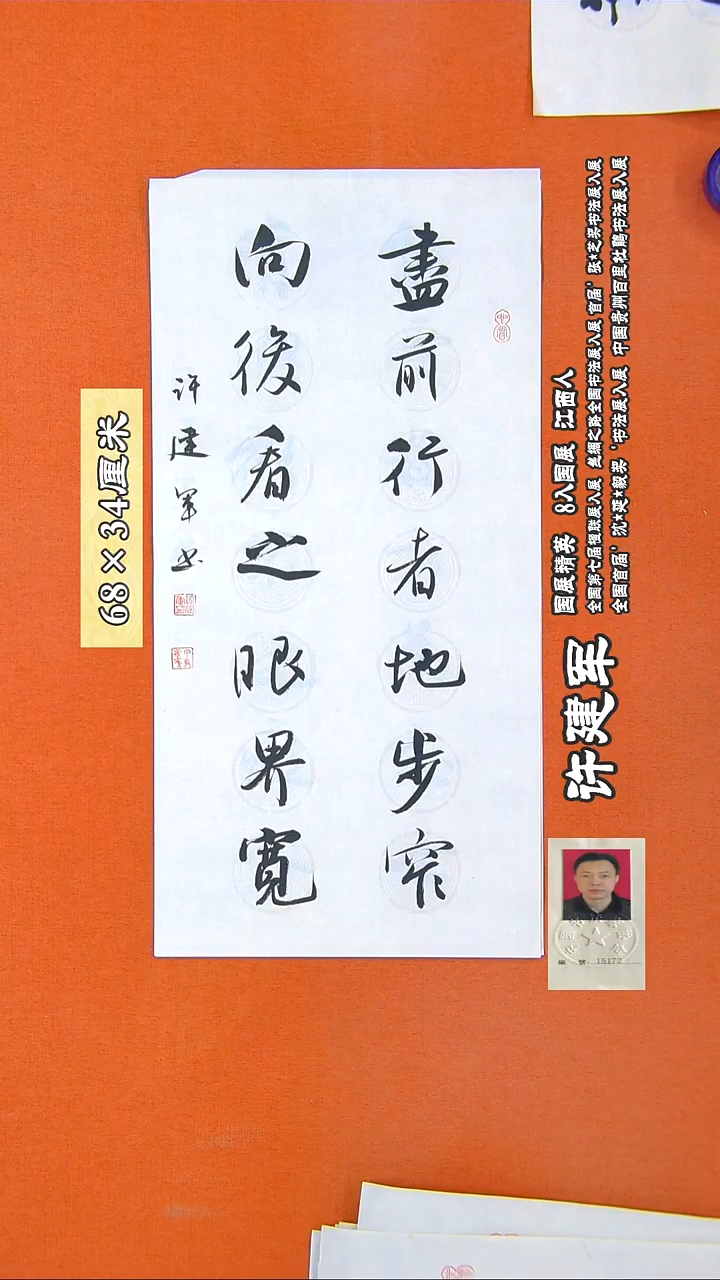 盡前行者地步窄
向後看之眼界寬
許建軍书
68×34厘米
许建军
国展精英 8入国展 江西人
全国第七届楹联展入展 丝绸之路全国书法展入展 首届‘张★芝奖书法展入展
全国首届‘沈★延★毅奖‘书法展入展 中国贵州百里杜鹃书法展入展
編 號 15172